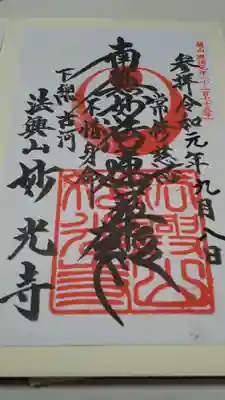 参拝令和元年九月八日
常修慈心
南無妙法蓮華経
不惜身命
下総古河
法興山妙光寺